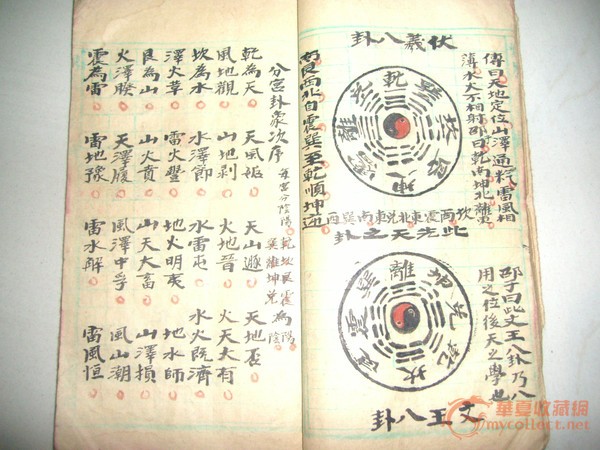 伏羲八卦
傳曰天地定位山澤通炁雷風相
薄水火不相射邵曰乾南坤北離東
乾巽坎艮坤震離兌
坎西震東北兌東南巽西
南艮西北自震巽至乾順坤逆
此先天之卦
邵子曰此文王八卦乃八
用之位後天之學也
離坤兌乾坎艮震巽
文王八卦
分宮卦象次序
乾坎艮震為陽
巽離坤兌為陰
乾為天 天風姤 天山遯 天地否
風地觀 山地剝 火地晉 火天大有
坎為水 水澤節 水雷屯 水火既濟
澤火革 雷火豐 地火明夷 地水師
艮為山 山火賁 山天大畜 山澤損
火澤睽 天澤履 風澤中孚 風山漸
震為雷 雷地豫 雷水解 雷風恒
華夏收藏網
mycollect.net